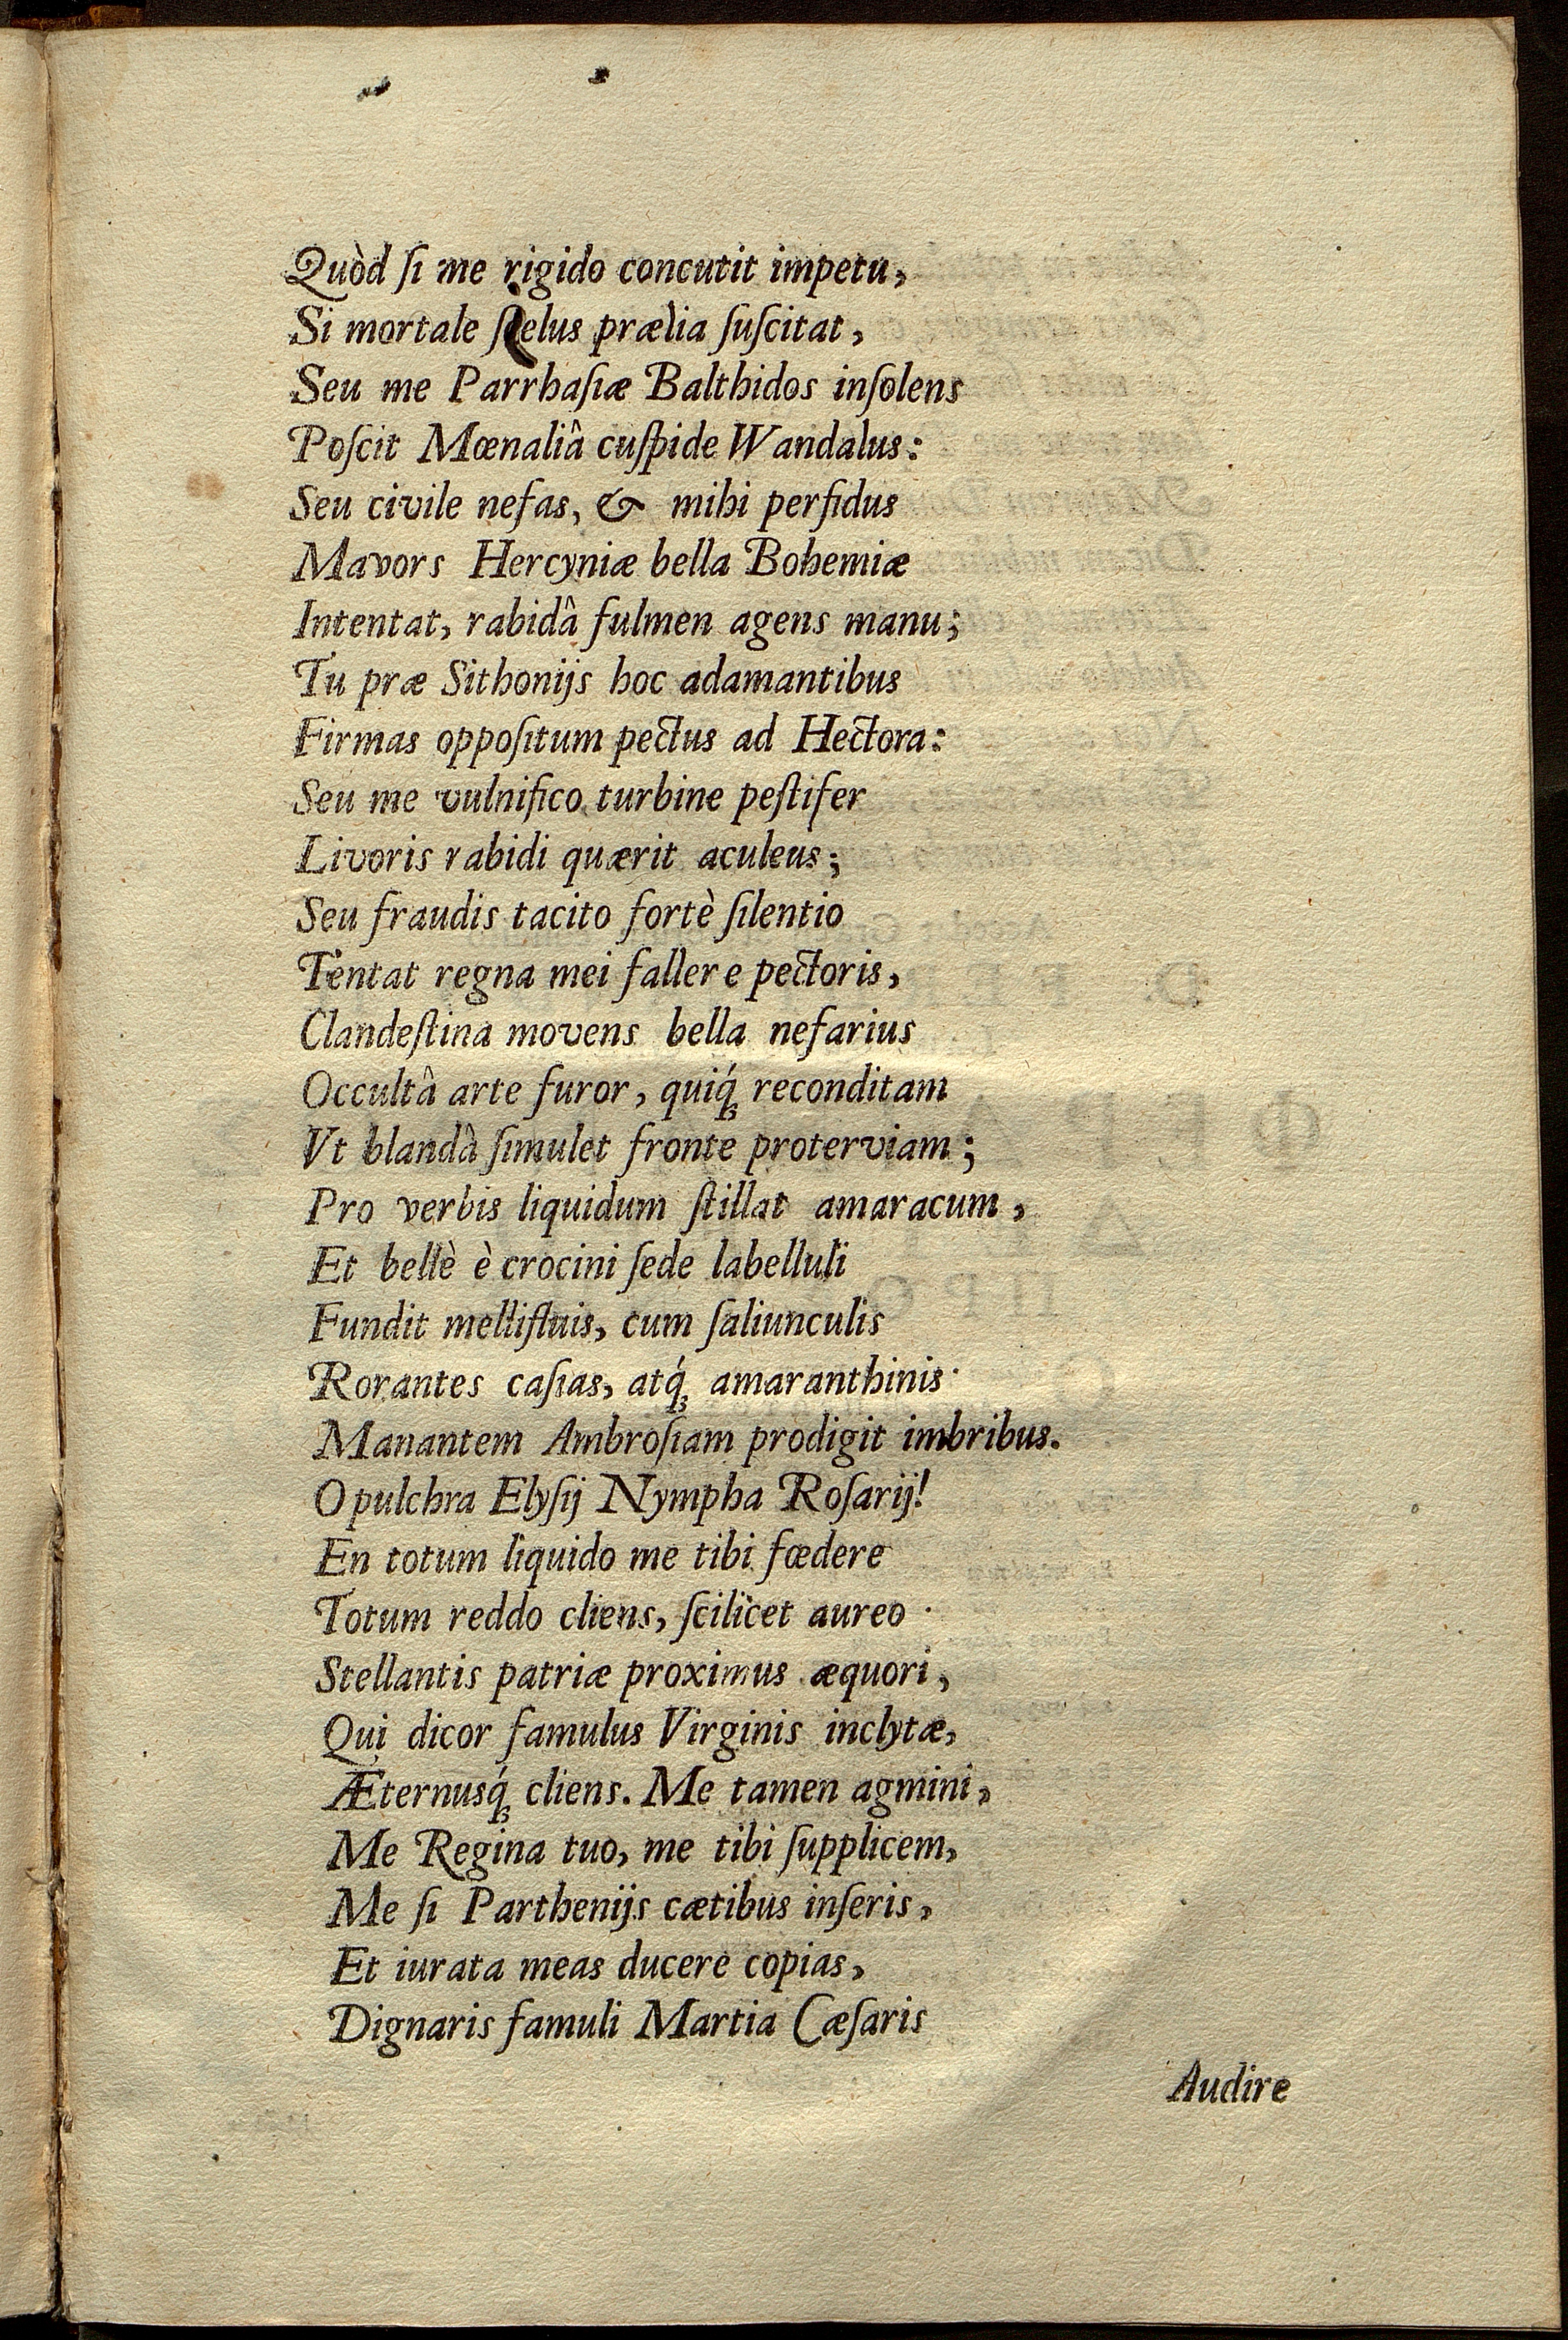 Quòd ſi me rigido concutit impetu,
Si mortale ſcelus prælia ſuſcitat,
Seu me Parrhaſiæ Balthidos inſolens
Poſcit Mœnaliâ cuſpide Wandalus:
Seu civile nefas, & mihi perfidus
Mavors Hercyniæ bella Bohemiæ
Intentat, rabidâ fulmen agens manu;
Tu præ Sithonijs hoc adamantibus
Firmas oppoſitum pectus ad Hectora:
Seu me vulnifico turbine peſtifer
Livoris rabidi quærit aculeus;
Seu fraudis tacito fortè ſilentio
Tentat regna mei fallere pectoris,
Clandeſtina movens bella nefarius
Occultâ arte furor, quiq́ꝫ reconditam
Vt blandâ ſimulet fronte proterviam;
Pro verbis liquidum ſtillat amaracum,
Et bellè è crocini ſede labelluli
Fundit mellifluis, cum ſaliunculis
Rorantes caſias, atq́ꝫ amaranthinis
Manantem Ambroſiam prodigit imbribus.
O pulchra Elyſij Nympha Roſarij!
En totum liquido me tibi fœdere
Totum reddo cliens, ſcilicet aureo
Stellantis patriæ proximus æquori,
Qui dicor famulus Virginis inclytæ,
Æternusq́ꝫ cliens. Me tamen agmini,
Me Regina tuo, me tibi ſupplicem,
Me ſi Parthenijs cætibus inſeris,
Et iurata meas ducere copias,
Dignaris famuli Martia Cæſaris
Audire